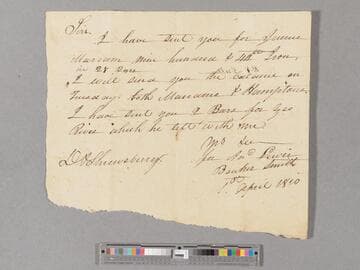 Sir
I have sent you for James
Marcum nine hundred & 46 lb Iron
in 28 Bars
I will send you the balance on
Tuesday both Marcums & Hamptons
I have sent you 2 Bars for Geo
Rice which he left with me
Lewis
Banker Smith
7th April 1810
D & Shrewsberry